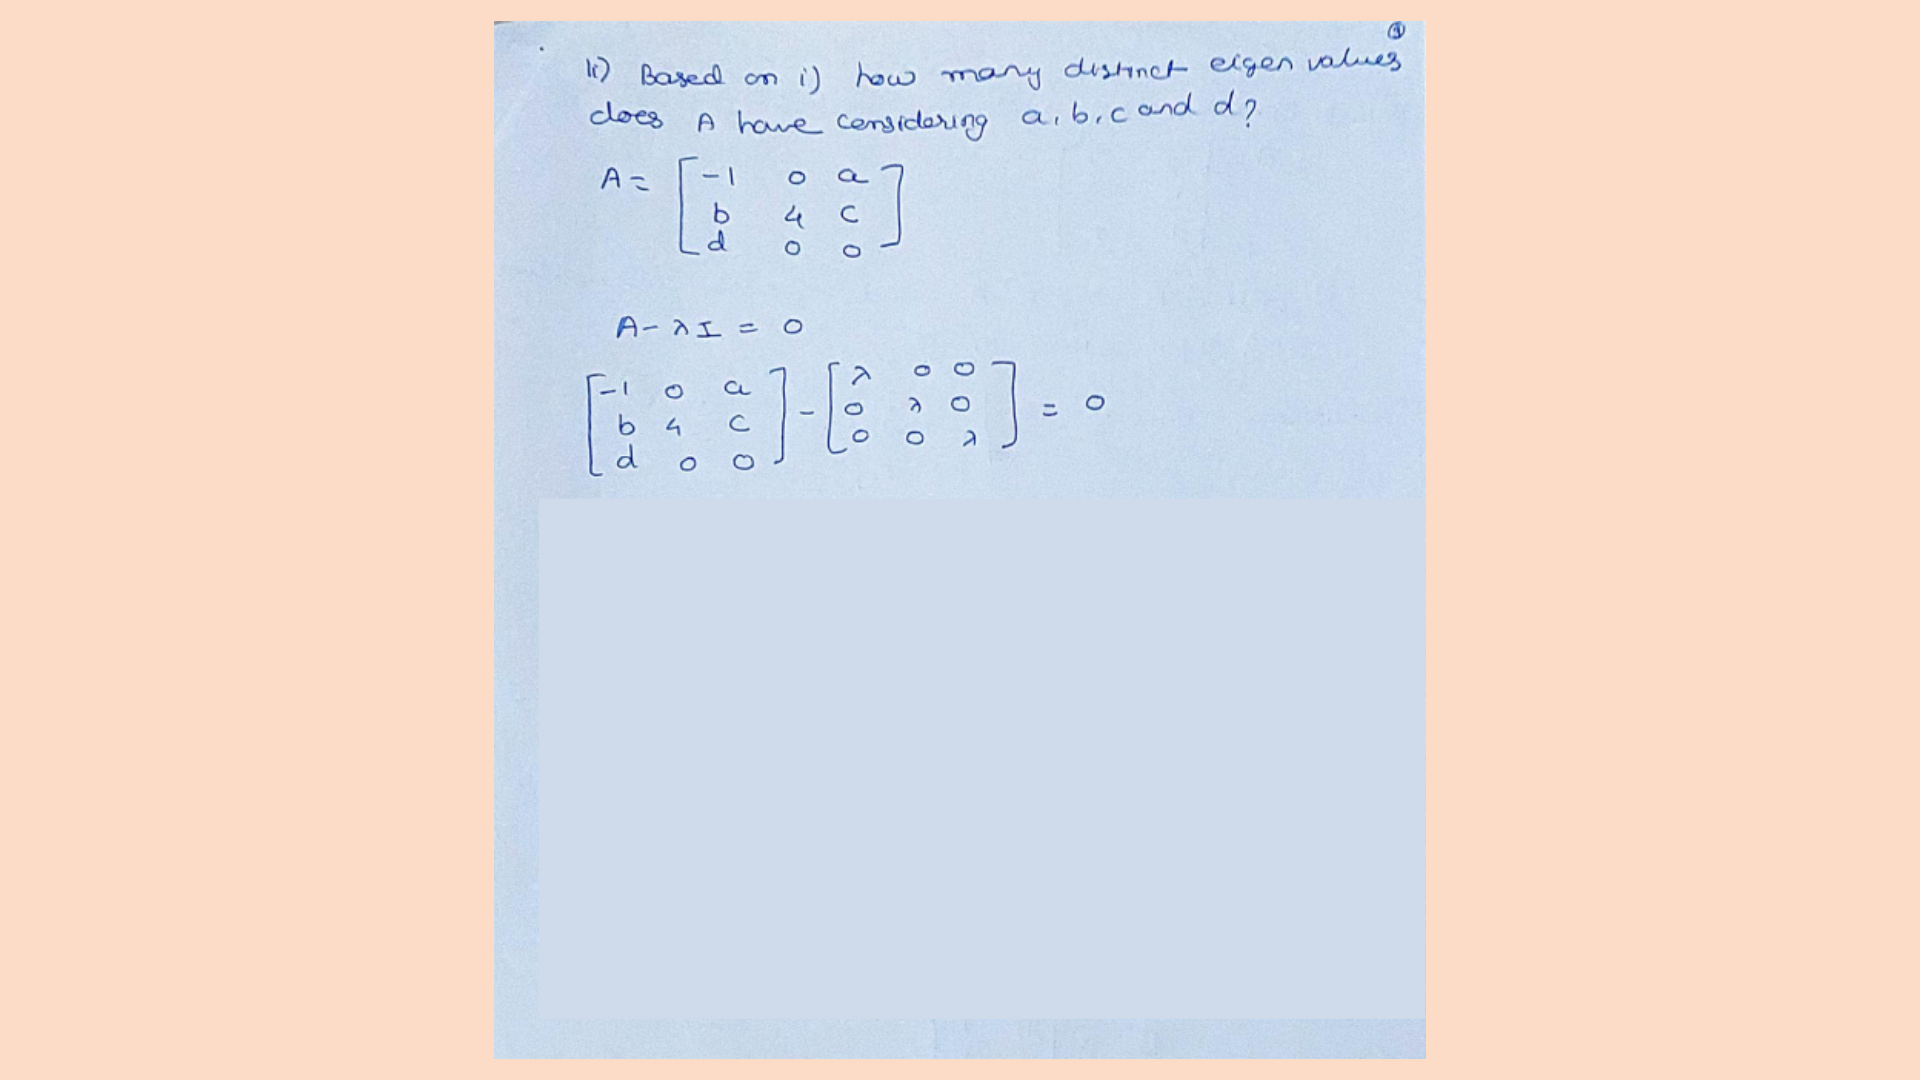 ①
ii) Based on i) how many distinct eigen values
does A have considering a, b, c and d?
A = [ -1 0 a
b 4 c
d 0 0 ]
A - λI = 0
[ -1 0 a ] - [ λ 0 0 ] = 0
[ b 4 c ] [ 0 λ 0 ]
[ d 0 0 ] [ 0 0 λ ]